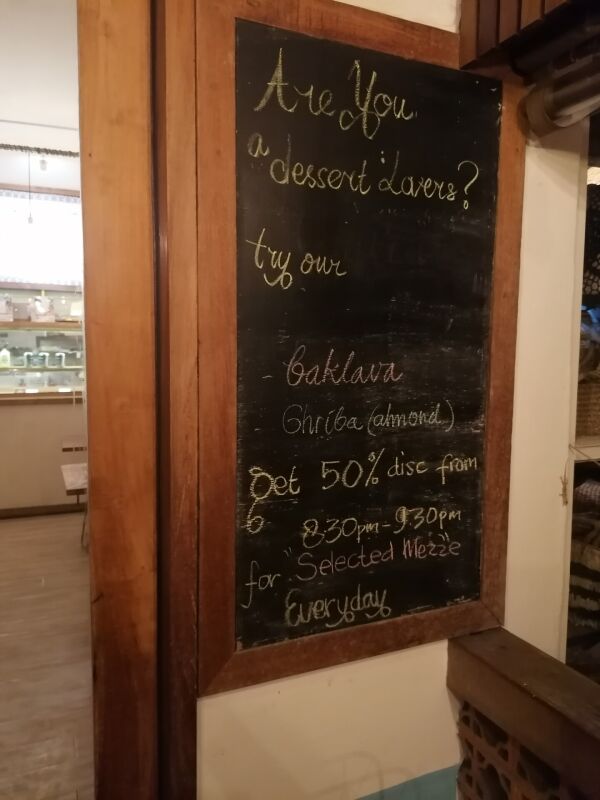 Are You
a dessert Lovers?
try our
- baklava
Ghriba (almond)
Get 50% disc from
8.30pm - 9.30pm
for "Selected Mezze"
Everyday